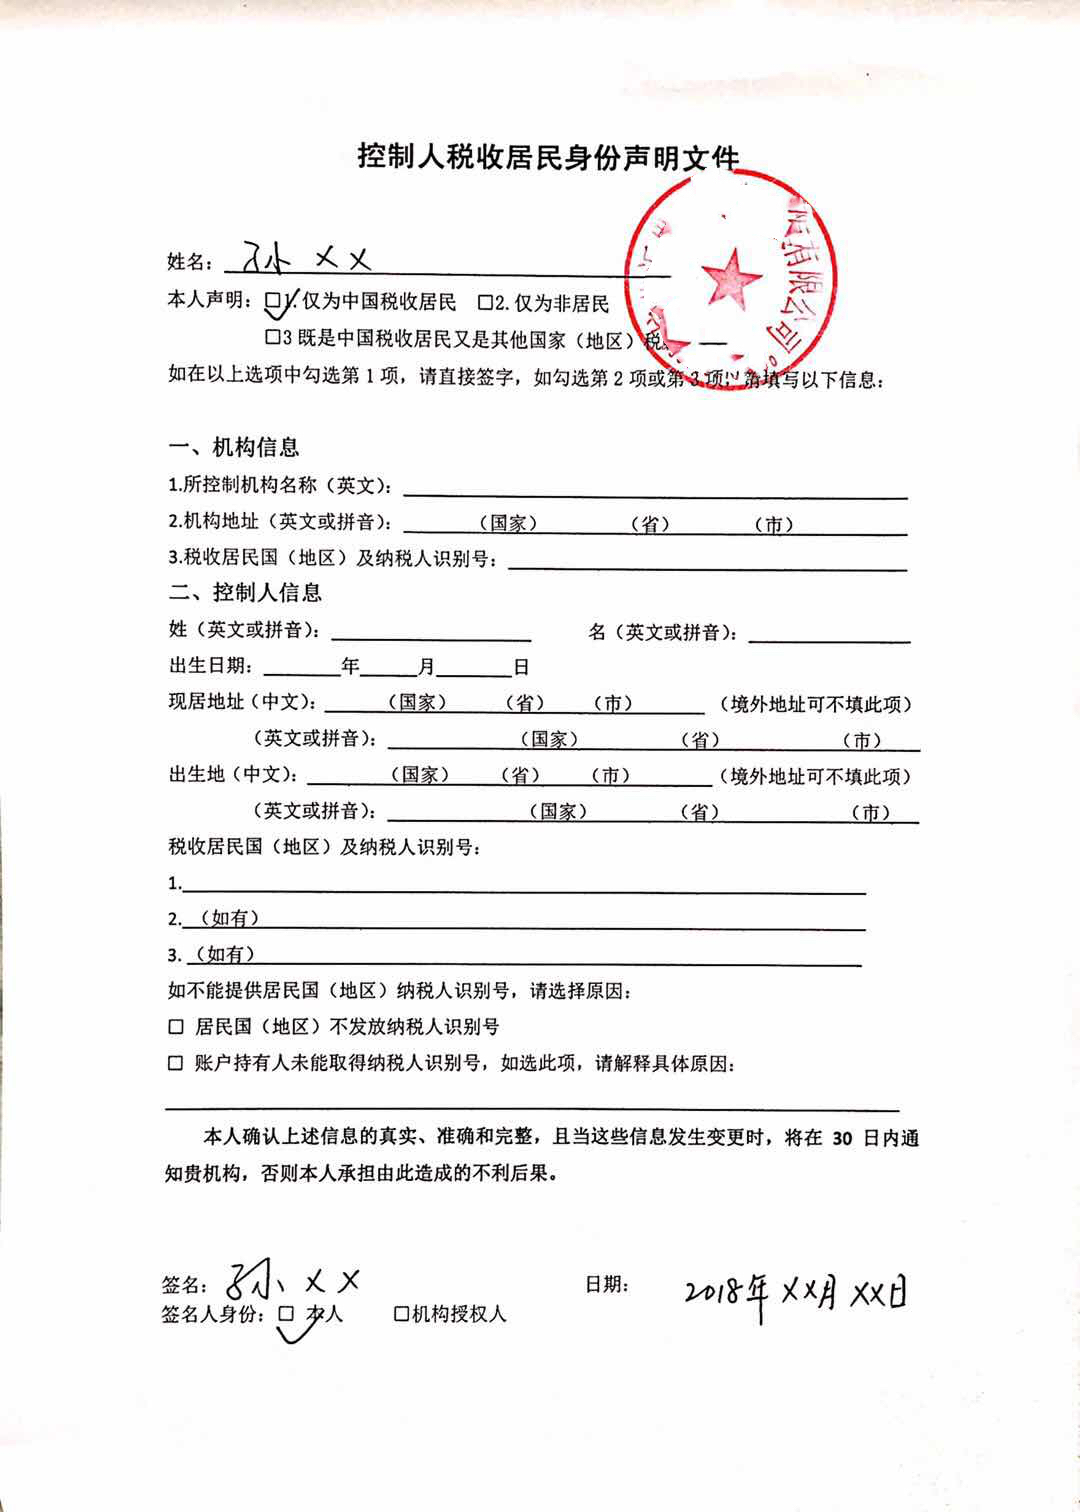 控制人税收居民身份声明文件
姓名：孙 ××
本人声明：☑1.仅为中国税收居民 □2.仅为非居民
□3既是中国税收居民又是其他国家（地区）税
如在以上选项中勾选第1项，请直接签字，如勾选第2项或第3项，请填写以下信息：
有限公司
一、机构信息
1.所控制机构名称（英文）：
2.机构地址（英文或拼音）：（国家）（省）（市）
3.税收居民国（地区）及纳税人识别号：
二、控制人信息
姓（英文或拼音）： 名（英文或拼音）：
出生日期： 年 月 日
现居地址（中文）：（国家）（省）（市）（境外地址可不填此项）
（英文或拼音）：（国家）（省）（市）
出生地（中文）：（国家）（省）（市）（境外地址可不填此项）
（英文或拼音）：（国家）（省）（市）
税收居民国（地区）及纳税人识别号：
1.
2.（如有）
3.（如有）
如不能提供居民国（地区）纳税人识别号，请选择原因：
□ 居民国（地区）不发放纳税人识别号
□ 账户持有人未能取得纳税人识别号，如选此项，请解释具体原因：
本人确认上述信息的真实、准确和完整，且当这些信息发生变更时，将在 30 日内通
知贵机构，否则本人承担由此造成的不利后果。
签名：孙 ×× 日期：2018年××月××日
签名人身份：☑ 本人 □机构授权人